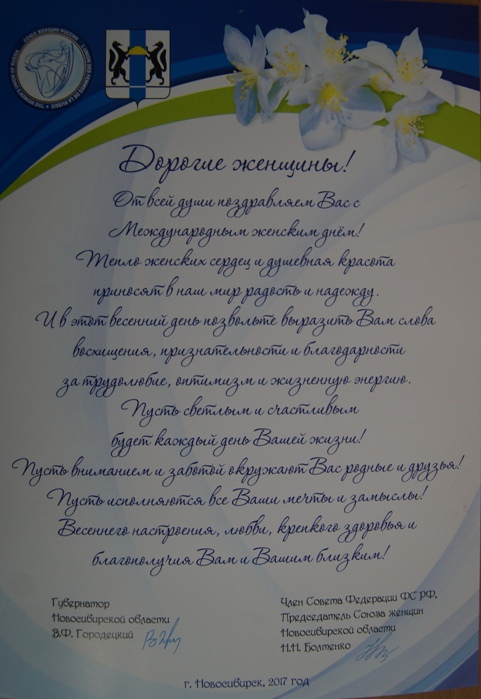 СОЮЗ ЖЕНЩИН РОССИИ
Дорогие женщины!
От всей души поздравляем Вас с
Международным женским днём!
Тепло женских сердец и душевная красота
приносят в наш мир радость и надежду.
И в этот весенний день позвольте выразить Вам слова
восхищения, признательности и благодарности
за трудолюбие, оптимизм и жизненную энергию.
Пусть светлым и счастливым
будет каждый день Вашей жизни!
Пусть вниманием и заботой окружают Вас родные и друзья!
Пусть исполняются все Ваши мечты и замыслы!
Весеннего настроения, любви, крепкого здоровья и
благополучия Вам и Вашим близким!
Губернатор
Новосибирской области
В.Ф. Городецкий
Член Совета Федерации ФС РФ,
Председатель Союза женщин
Новосибирской области
Н.Н. Болтенко
г. Новосибирск, 2017 год